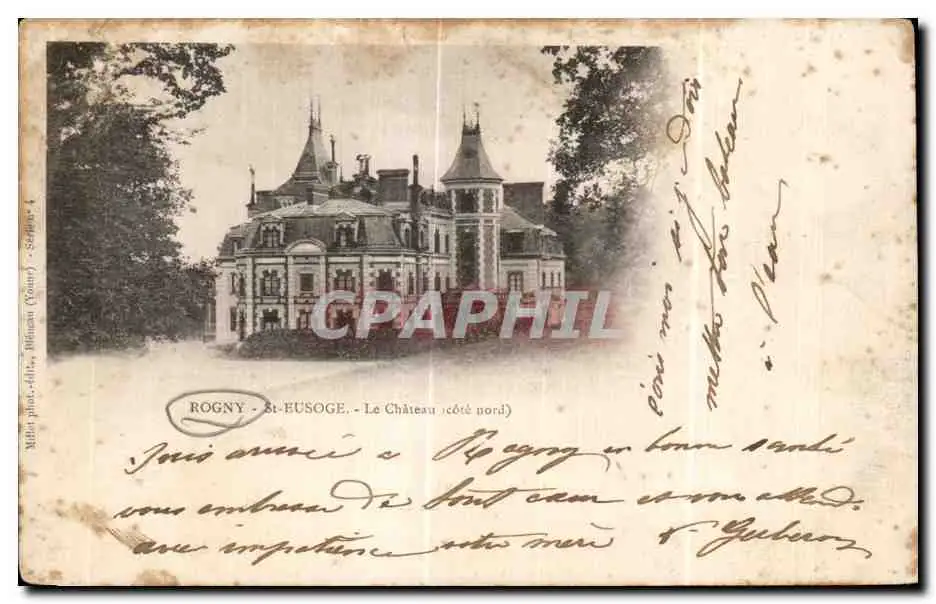 Millet phot.-édit., Bléneau (Yonne) - Série nº 4
CPAPHIL
ROGNY - St-EUSOGE. - Le Château (côté nord)
Suis arrivée a Rogny en bonne santé
vous embrasse de tout cœur et vous attend
avec impatience votre mère
écris moi si tu dois
mettre ton bateau
a l'eau